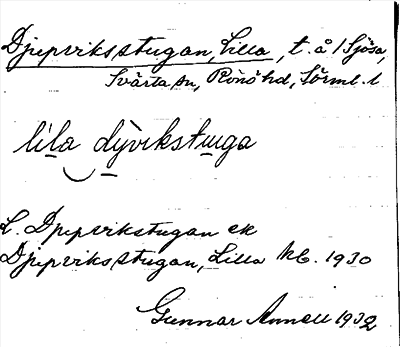 Djupviksstugan, Lilla, t. å / Sjösa,
Svärta sn, Rönö hd, Sörml. l
lila dỳvikstuga
L. Djupvikstugan ek
Djupviksstugan, Lilla kb. 1930
Gunnar Annell 1932